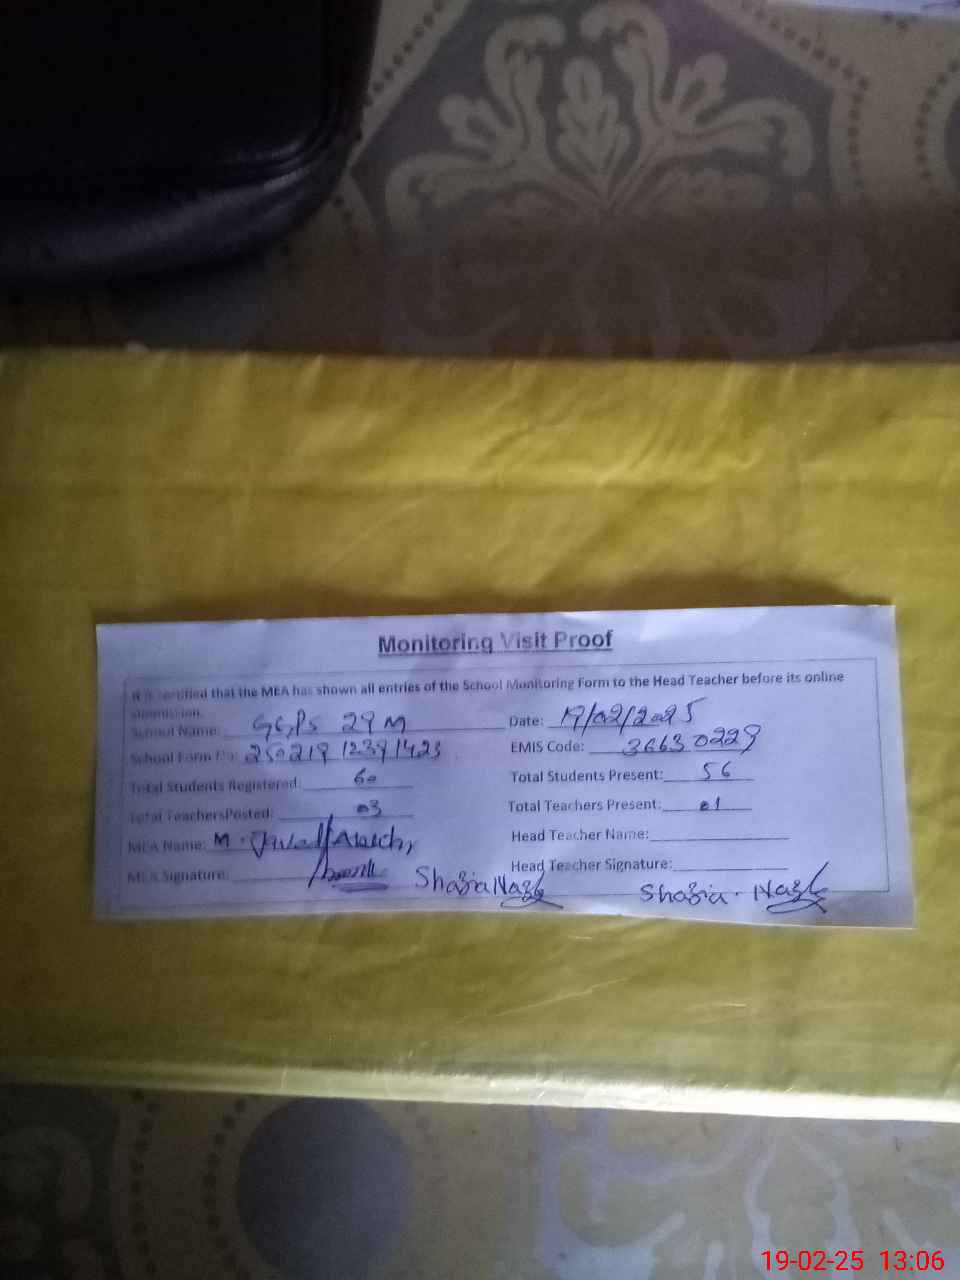 Monitoring Visit Proof
It is certified that the MEA has shown all entries of the School Monitoring Form to the Head Teacher before its online
submission.
School Name: GGPS 29 M Date: 19/02/2025
School Form No: 250219 12391423 EMIS Code: 36630229
Total Students Registered: 60 Total Students Present: 56
Total TeachersPosted: 03 Total Teachers Present: 01
MEA Name: M. Head Teacher Name:
MEA Signature: Head Teacher Signature:
Shazia Naz Shazia. Naz
19-02-25 13:06